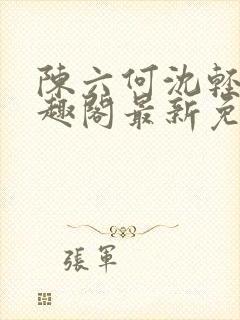 陳六何沈輕
趣閣最新免
張軍